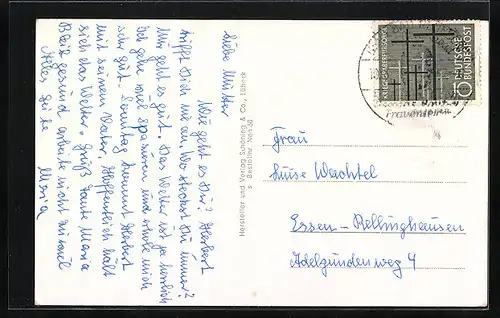 Liebe Mutter
Wie geht es Dir? Herbert
trifft Dich nie an. Wo steckst Du immer?
Mir geht es gut. Das Wetter ist ja herrlich
gehe viel spazieren und erhole mich
sehr gut. Sonntag kommt Herbert
mit seinem Vater, hält
sich das Wetter. Grüß Tante Maria
Bleib gesund arbeite nicht zu viel
Alles Gute Maria
Hersteller und Verlag Schöning & Co., Lübeck
Bestell-Nr
KRIEGSGRÄBERFÜRSORGE
DEUTSCHE
BUNDESPOST
10
Frau
Luise Wachtel
Essen-Rellinghausen
Adelgundenweg 4